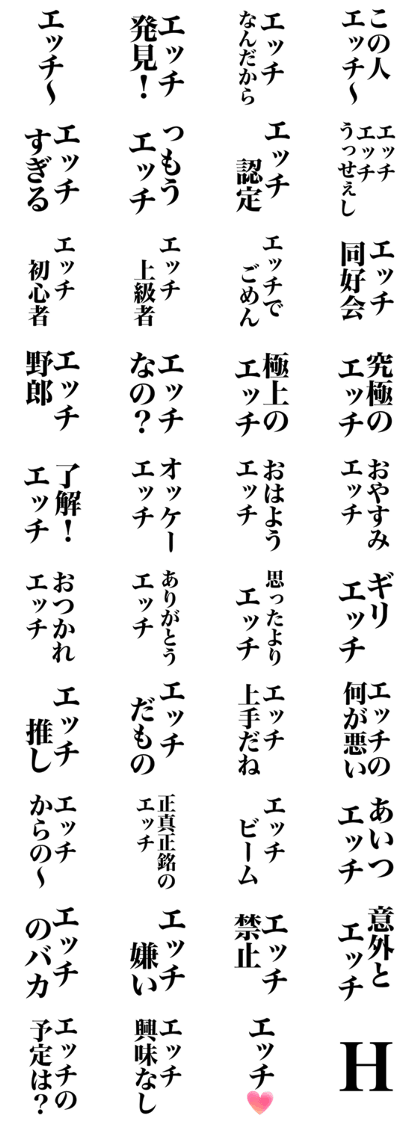 エッチ〜
エッチ
発見！
エッチ
なんだから
この人
エッチ〜
エッチ
すぎる
っもう
エッチ
エッチ
認定
エッチ
エッチ
うっせぇし
エッチ
初心者
エッチ
上級者
エッチで
ごめん
エッチ
同好会
エッチ
野郎
エッチ
なの？
極上の
エッチ
究極の
エッチ
了解！
エッチ
オッケー
エッチ
おはよう
エッチ
おやすみ
エッチ
おつかれ
エッチ
ありがとう
エッチ
思ったより
エッチ
ギリ
エッチ
エッチ
推し
エッチ
だもの
エッチ
上手だね
エッチの
何が悪い
エッチ
からの〜
正真正銘の
エッチ
エッチ
ビーム
あいつ
エッチ
エッチ
のバカ
エッチ
嫌い
エッチ
禁止
意外と
エッチ
エッチの
予定は？
エッチ
興味なし
エッチ
H